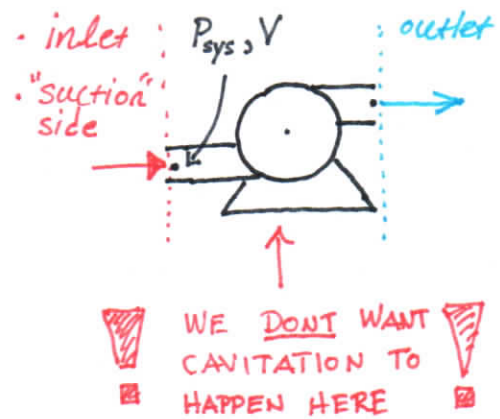 • inlet
• "suction" side
P_sys, V
outlet
! WE DONT WANT !
CAVITATION TO
HAPPEN HERE